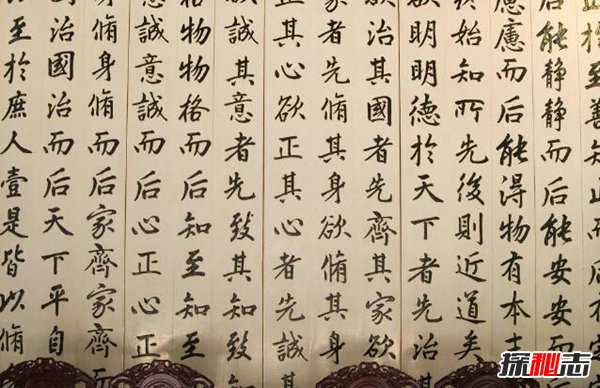 於至善知止而后
后能静静而后能安安而
慮慮而后能得物有本末
終始知所先後則近道矣
欲明明德於天下者先治其
欲治其國者先齊其家欲
家者先脩其身欲脩其身
正其心欲正其心者先誠
誠其意者先致其知致
格物物格而后知至知至
意誠意誠而后心正心正
身脩而后家齊家齊而
治國治而后天下平自
至於庶人壹是皆以脩
探秘志